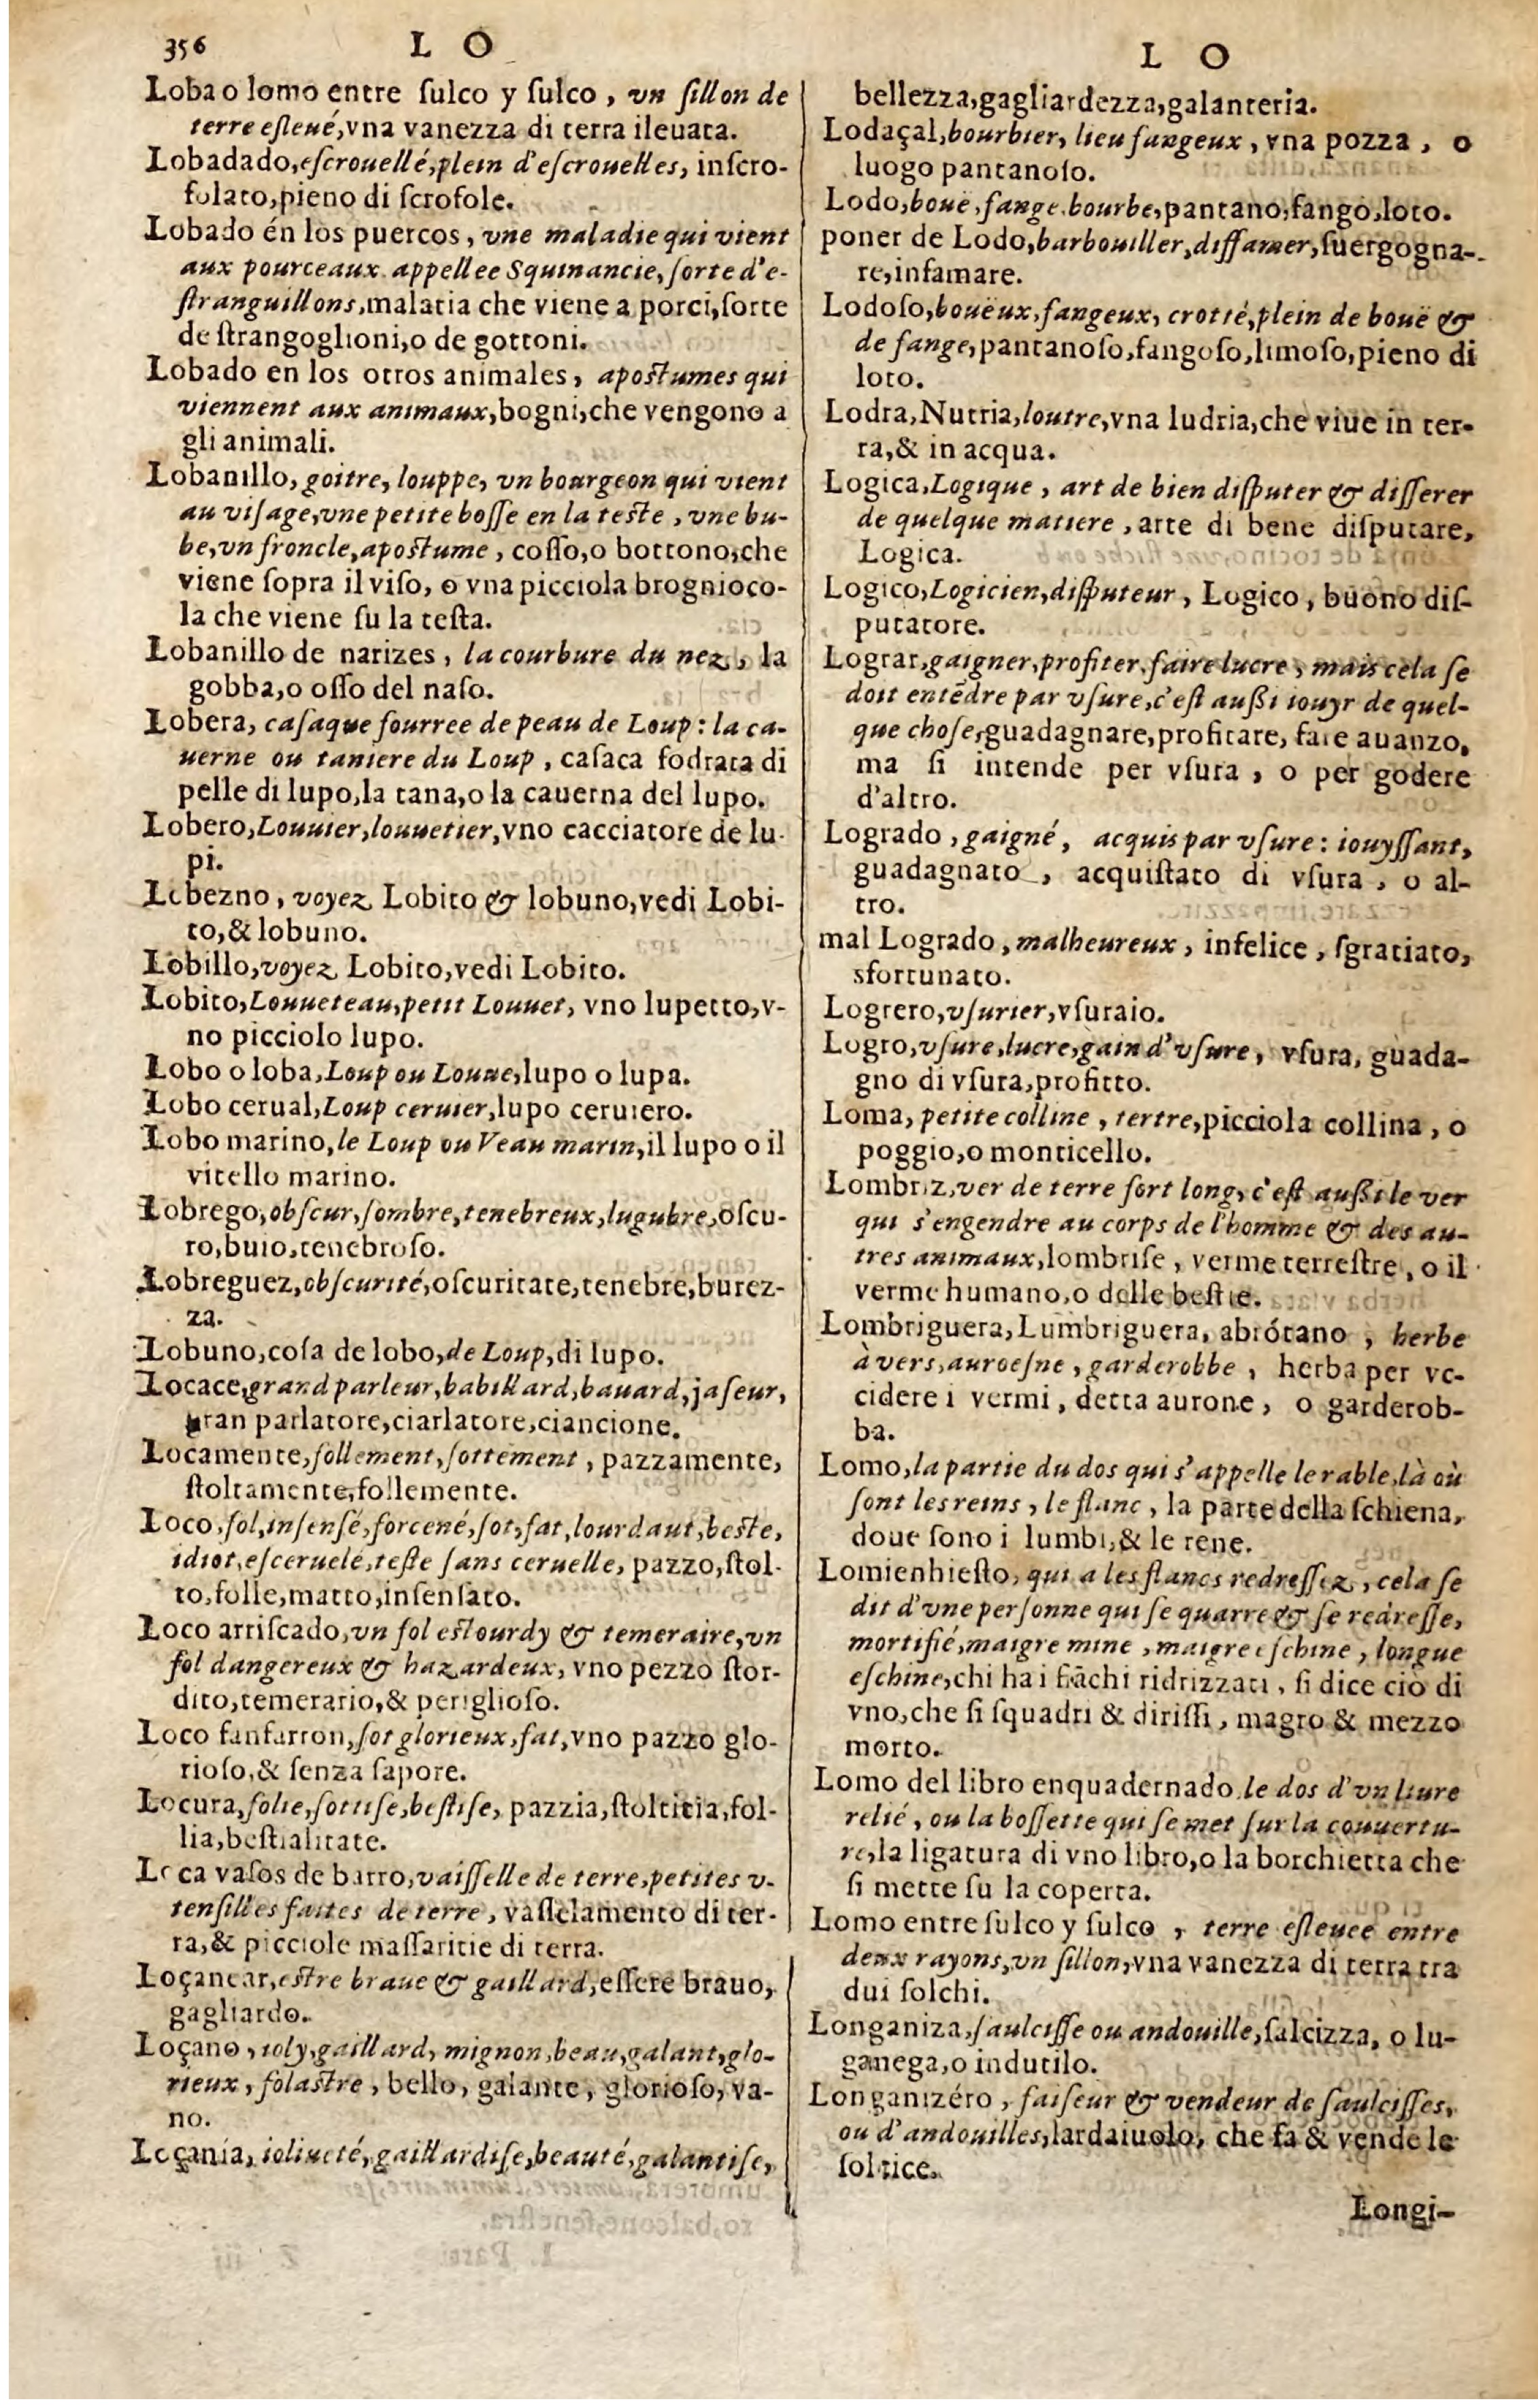 356 L O
Loba o lomo entre ſulco y ſulco, vn ſillon de
terre eſleué, vna vanezza di terra ileuata.
Lobadado, eſcrouellé, plein d'eſcrouelles, inſcro-
folato, pieno di ſcrofole.
Lobado én los puercos, vne maladie qui vient
aux pourceaux appellee Squinancie, ſorte d'e-
ſtranguillons, malatia che viene a porci, ſorte
de ſtrangoglioni, o de gottoni.
Lobado en los otros animales, apoſtumes qui
viennent aux animaux, bogni, che vengono a
gli animali.
Lobanillo, goitre, louppe, vn bourgeon qui vient
au viſage, vne petite boſſe en la teſte, vne bu-
be, vn froncle, apoſtume, coſſo, o bottono, che
viene ſopra il viſo, o vna picciola brognioco-
la che viene ſu la teſta.
Lobanillo de narizes, la courbure du nez, la
gobba, o oſſo del naſo.
Lobera, caſaque fourree de peau de Loup: la ca-
uerne ou taniere du Loup, caſaca fodrata di
pelle di lupo, la tana, o la cauerna del lupo.
Lobero, Louuier, louuetier, vno cacciatore de lu-
pi.
Lobezno, voyez Lobito & lobuno, vedi Lobi-
to, & lobuno.
Lobillo, voyez Lobito, vedi Lobito.
Lobito, Louueteau, petit Louuet, vno lupetto, v-
no picciolo lupo.
Lobo o loba, Loup ou Louue, lupo o lupa.
Lobo cerual, Loup ceruier, lupo ceruiero.
Lobo marino, le Loup ou Veau marin, il lupo o il
vitello marino.
Lobrego, obſcur, ſombre, tenebreux, lugubre, oſcu-
ro, buio, tenebroſo.
Lobreguez, obſcurité, oſcuritate, tenebre, burez-
za.
Lobuno, coſa de lobo, de Loup, di lupo.
Locace, grand parleur, babillard, bauard, jaſeur,
gran parlatore, ciarlatore, ciancione.
Locamente, follement, ſottement, pazzamente,
ſtoltamente, follemente.
Loco, fol, inſenſé, forcené, ſot, fat, lourdaut, beſte,
idiot, eſceruelé, teſte ſans ceruelle, pazzo, ſtol-
to, folle, matto, inſenſato.
Loco arriſcado, vn fol eſtourdy & temeraire, vn
fol dangereux & hazardeux, vno pezzo ſtor-
dito, temerario, & periglioſo.
Loco fanfarron, ſot glorieux, fat, vno pazzo glo-
rioſo, & ſenza ſapore.
Locura, folie, ſottiſe, beſtiſe, pazzia, ſtoltitia, fol-
lia, beſtialitate.
Loca vaſos de barro, vaiſſelle de terre, petites v-
tenſilles faites de terre, vaſſelamento di ter-
ra, & picciole maſſaritie di terra.
Loçanear, eſtre braue & gaillard, eſſere brauo,
gagliardo.
Loçano, ioly, gaillard, mignon, beau, galant, glo-
rieux, folaſtre, bello, galante, glorioſo, va-
no.
Loçania, ioliueté, gaillardiſe, beauté, galantiſe,
L O
bellezza, gagliardezza, galanteria.
Lodaçal, bourbier, lieu fangeux, vna pozza, o
luogo pantanoſo.
Lodo, bouë, fange, bourbe, pantano, fango, loto.
poner de Lodo, barbouiller, diffamer, ſuergogna-
re, infamare.
Lodoſo, boueux, fangeux, crotté, plein de bouë &
de fange, pantanoſo, fangoſo, limoſo, pieno di
loto.
Lodra, Nutria, loutre, vna ludria, che viue in ter-
ra, & in acqua.
Logica, Logique, art de bien diſputer & differer
de quelque matiere, arte di bene diſputare,
Logica.
Logico, Logicien, diſputeur, Logico, buono diſ-
putatore.
Lograr, gaigner, profiter, faire lucre, mais cela ſe
doit entēdre par vſure, c'eſt auſſi iouyr de quel-
que choſe, guadagnare, profitare, fare auanzo,
ma ſi intende per vſura, o per godere
d'altro.
Logrado, gaigné, acquis par vſure: iouyſſant,
guadagnato, acquiſtato di vſura, o al-
tro.
mal Logrado, malheureux, infelice, ſgratiato,
sfortunato.
Logrero, vſurier, vſuraio.
Logro, vſure, lucre, gain d'vſure, vſura, guada-
gno di vſura, profitto.
Loma, petite colline, tertre, picciola collina, o
poggio, o monticello.
Lombriz, ver de terre fort long, c'eſt auſſi le ver
qui s'engendre au corps de l'homme & des au-
tres animaux, lombriſe, verme terreſtre, o il
verme humano, o delle beſtie.
Lombriguera, Lumbriguera, abrótano, herbe
à vers, auroeſne, garderobbe, herba per vc-
cidere i vermi, detta aurone, o garderob-
ba.
Lomo, la partie du dos qui s'appelle le rable, là où
ſont les reins, le flanc, la parte della ſchiena,
doue ſono i lumbi, & le rene.
Lomienhieſto, qui a les flancs redreſſez, cela ſe
dit d'vne perſonne qui ſe quarre & ſe redreſſe,
mortifié, maigre mine, maigre eſchine, longue
eſchine, chi ha i fiāchi ridrizzati, ſi dice ciò di
vno, che ſi ſquadri & diriſſi, magro & mezzo
morto.
Lomo del libro enquadernado, le dos d'vn liure
relié, ou la boſſette qui ſe met ſur la couuertu-
re, la ligatura di vno libro, o la borchietta che
ſi mette ſu la coperta.
Lomo entre ſulco y ſulco, terre eſleuee entre
deux rayons, vn ſillon, vna vanezza di terra tra
dui ſolchi.
Longaniza, ſaulciſſe ou andouille, ſalcizza, o lu-
ganega, o indutilo.
Longanizéro, faiſeur & vendeur de ſaulciſſes,
ou d'andouilles, lardaiuolo, che fa & vende le
Longi-